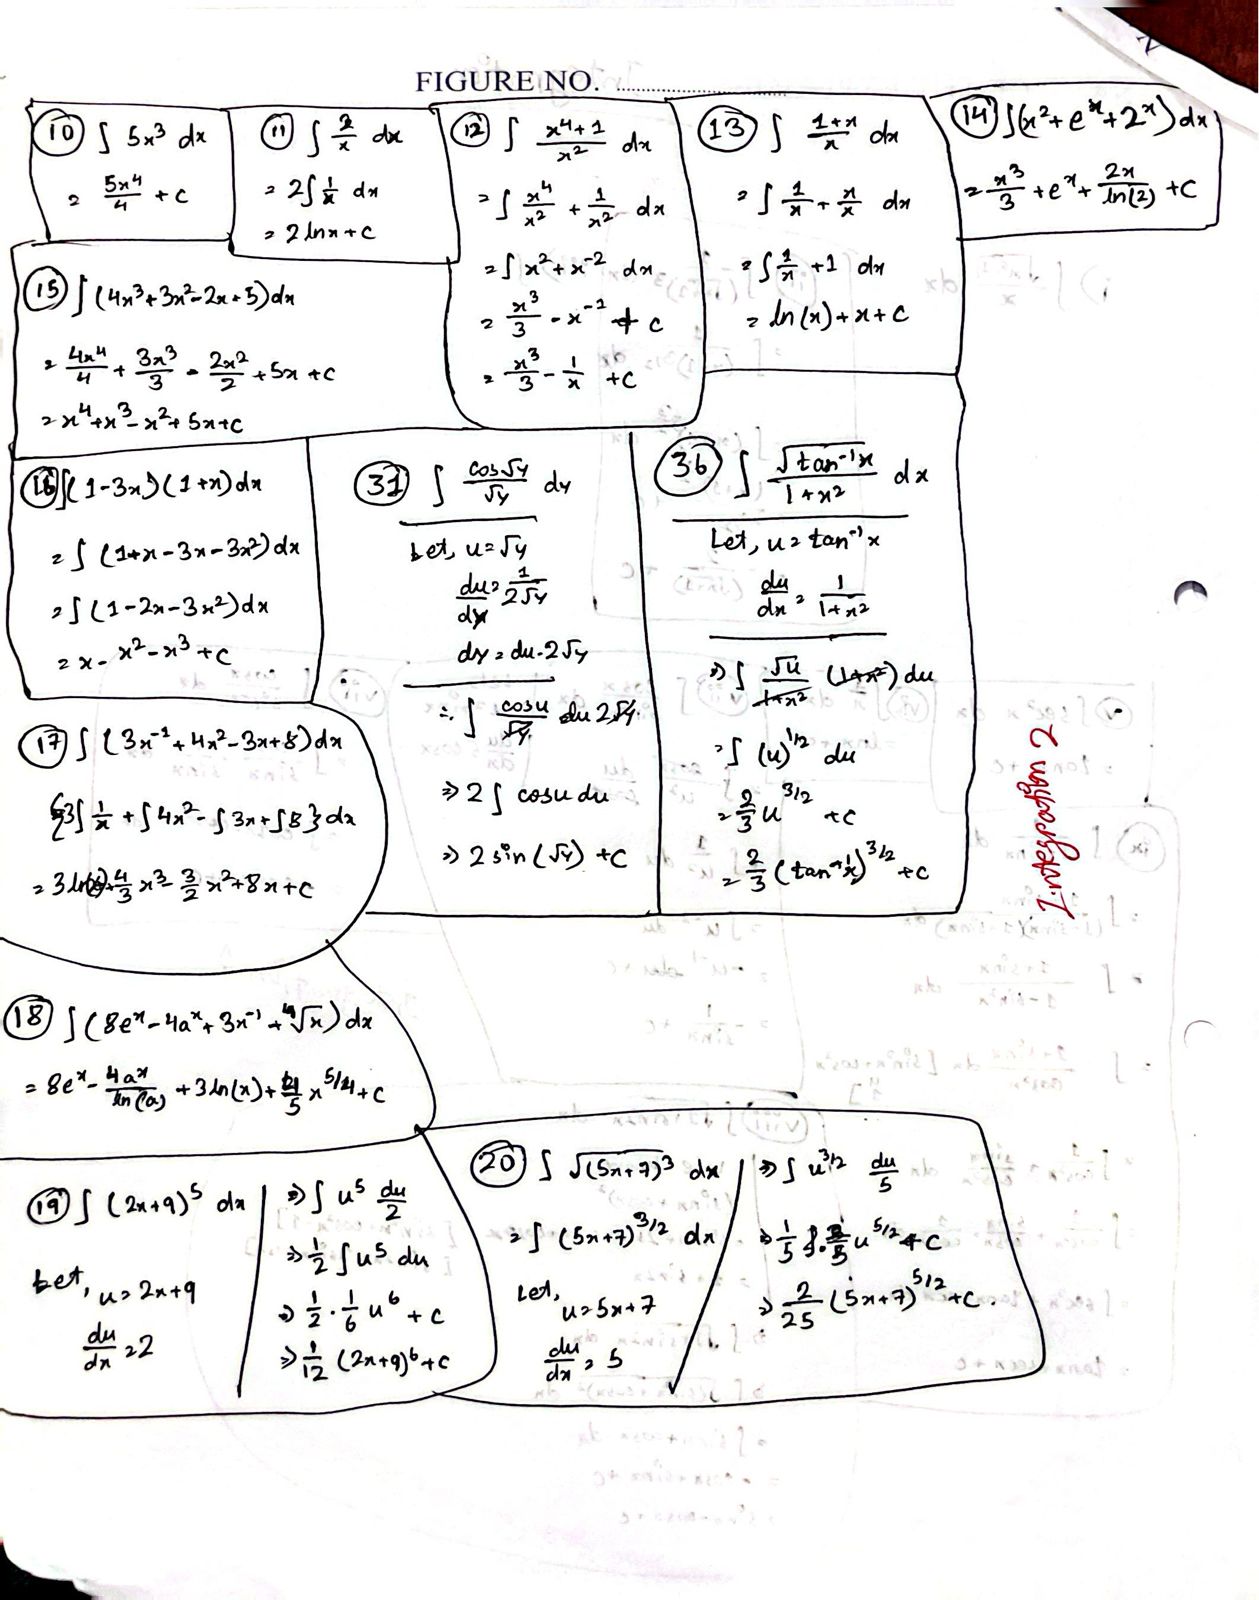 FIGURE NO. ..............................
(10) ∫ 5x³ dx
= 5x⁴/4 + c
(11) ∫ 2/x dx
= 2∫ 1/x dx
= 2 ln x + c
(12) ∫ (x⁴+1)/x² dx
= ∫ x⁴/x² + 1/x² dx
= ∫ x² + x⁻² dx
= x³/3 - x⁻¹ + c
= x³/3 - 1/x + c
(13) ∫ (1+x)/x dx
= ∫ 1/x + x/x dx
= ∫ 1/x + 1 dx
= ln(x) + x + c
(14) ∫(x² + eˣ + 2ˣ) dx
= x³/3 + eˣ + 2x/ln(2) + c
(15) ∫ (4x³ + 3x² - 2x + 5) dx
= 4x⁴/4 + 3x³/3 - 2x²/2 + 5x + c
= x⁴ + x³ - x² + 5x + c
(16) ∫(1-3x)(1+x) dx
= ∫ (1+x-3x-3x²) dx
= ∫ (1-2x-3x²) dx
= x - x² - x³ + c
(31) ∫ cos√y/√y dy
Let, u = √y
du/dy = 1/2√y
dy = du·2√y
∴ ∫ cosu/√y du 2√y
⇒ 2 ∫ cosu du
⇒ 2 sin(√y) + c
(36) ∫ √tan⁻¹x/1+x² dx
Let, u = tan⁻¹x
du/dx = 1/1+x²
⇒ ∫ √u/1+x² (1+x²) du
= ∫ (u)^1/2 du
= 2/3 u^3/2 + c
= 2/3 (tan⁻¹x)^3/2 + c
(17) ∫ (3x⁻¹ + 4x² - 3x + 8) dx
{3∫ 1/x + ∫4x² - ∫3x + ∫8} dx
= 3 ln(x) + 4/3 x³ - 3/2 x² + 8x + c
(18) ∫ (8eˣ - 4aˣ + 3x⁻¹ + ⁴√x) dx
= 8eˣ - 4aˣ/ln(a) + 3 ln(x) + 4/5 x^5/4 + c
(19) ∫ (2x+9)⁵ dx
Let, u = 2x+9
du/dx = 2
⇒ ∫ u⁵ du/2
⇒ 1/2 ∫ u⁵ du
⇒ 1/2 · 1/6 u⁶ + c
⇒ 1/12 (2x+9)⁶ + c
(20) ∫ √(5x+7)³ dx
= ∫ (5x+7)^3/2 dx
Let, u = 5x+7
du/dx = 5
⇒ ∫ u^3/2 du/5
⇒ 1/5 · 2/5 u^5/2 + c
⇒ 2/25 (5x+7)^5/2 + c.
Integration 2